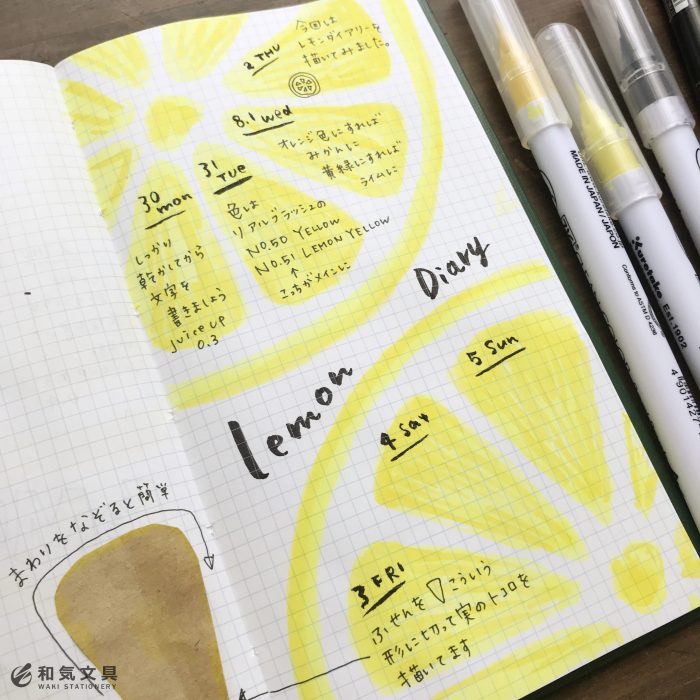 2 THU
今回は
レモンダイアリーを
描いてみました。
8.1 wed
オレンジ色にすれば
みかんに
黄緑にすれば
ライムに
31
Tue
色は
リアルブラッシュの
NO.50 YELLOW
NO.51 LEMON YELLOW
↑
こっちがメインに
30
mon
しっかり
乾かしてから
文字を
書きましょう
juice up
0.3
lemon
Diary
5 Sun
4 Sat
3 FRI
ふせんを▽こういう
形に切って実のトコロを
描いてます
まわりをなぞると簡単
MADE IN JAPAN/JAPON
Kuretake Est.1902
Conforms to ASTM D 4236
4 901427
和気文具
WAKI STATIONERY